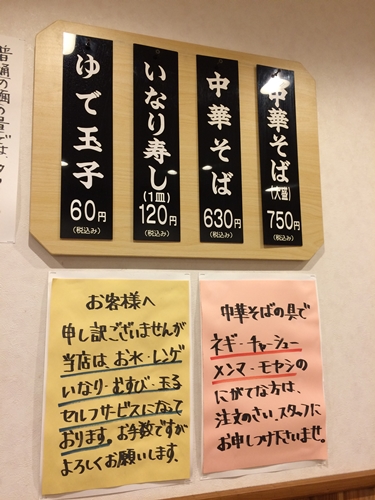 中華そば(大盛)
750円
(税込み)
中華そば
630円
(税込み)
いなり寿し
(1皿)
120円
(税込み)
ゆで玉子
60円
(税込み)
お客様へ
申し訳ございませんが
当店は、お水・レンゲ
いなり・むすび・玉子
セルフサービスになって
おります。お手数ですが
よろしくお願いします。
中華そばの具で
ネギ・チャーシュー
メンマ・モヤシの
にがてな方は、
注文のさい、スタッフに
お申しつけ下さいませ。